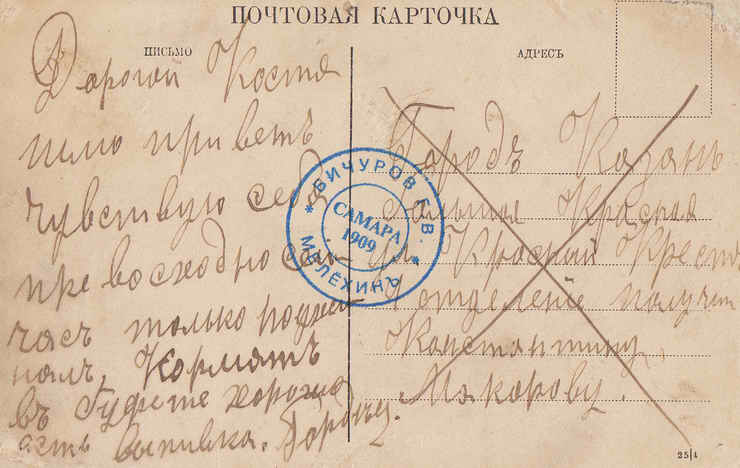 ПОЧТОВАЯ КАРТОЧКА
ПИСЬМО
АДРЕСЪ
Дорогой Костя
шлю приветъ
чувствую себя
превосходно сей
часъ только
Кормятъ
въ буфете хорошо
есть выпивка.
* БИЧУРОВ Г. В. *
МЕЛЁХИНЪ
САМАРА
1909
Городъ Казань
Большая Красная
Красный Крестъ
отделение получит
Константину
Макорову.
25/4